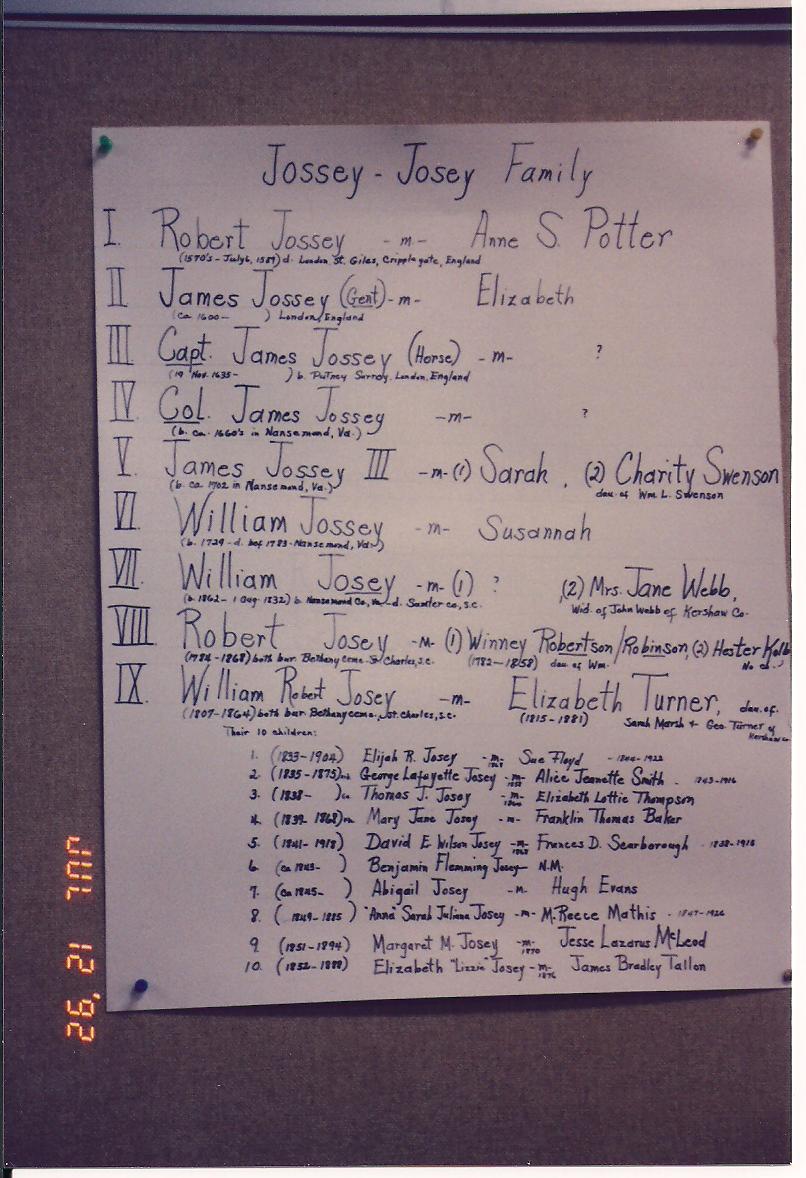 Jossey - Josey Family
I. Robert Jossey -m- Anne S. Potter
(1570's - July 6, 1589) d. London St. Giles, Cripplegate, England
II James Jossey (Gent) -m- Elizabeth
(ca 1600- ) London, England
III Capt. James Jossey (Horse) -m- ?
(19 Nov. 1635- ) b. Putney Surray, London, England
IV Col. James Jossey -m- ?
(b. ca. 1660's in Nansemond, Va.)
V. James Jossey III -m- (1) Sarah, (2) Charity Swenson
(b. ca 1702 in Nansemond, Va.) dau. of Wm L. Swenson
VI. William Jossey -m- Susannah
(b. 1729 - d. bef 1783 - Nansemond, Va.)
VII. William Josey -m- (1) ? ,(2) Mrs. Jane Webb,
(b. 1862 - 1 Aug. 1832) b. Nansemond Co, Va. - d. Sumter co, s.c. Wid. of John Webb of Kershaw Co.
VIII Robert Josey -M- (1) Winney Robertson/Robinson, (2) Hester Kolb
(1784 - 1868) both bur. Bethany ceme. St Charles, s.c. (1782-1858) dau of Wm. No ch.
IX William Robert Josey -m- Elizabeth Turner, dau. of.
(1807-1864) both bur. Bethany ceme., st. Charles, s.c. (1815-1881) Sarah Marsh + Geo. Turner of Kershaw
Their 10 children:
1. (1833-1904) Elijah R. Josey -m- Sue Floyd - 1844-1922
2. (1835-1875) George Lafayette Josey -m- Alice Jeanette Smith - 1843-1916
3. (1838- ) Thomas J. Josey -m- Elizabeth Lottie Thompson
4. (1839-1868) Mary Jane Josey -m- Franklin Thomas Baker
5. (1841-1918) David E. Wilson Josey -m- Frances D. Scarborough - 1838-1915
6. (ca 1843- ) Benjamin Flemming Josey - N.M.
7. (ca 1845- ) Abigail Josey -m- Hugh Evans
8. (1849-1885) "Anna" Sarah Juliana Josey -m- M. Reece Mathis - 1847-1926
9. (1851-1894) Margaret M. Josey -m- 1870 Jesse Lazarus McLeod
10. (1852-1888) Elizabeth "Lizzie" Josey -m- 1876 James Bradley Tallon
JUL 12 '92